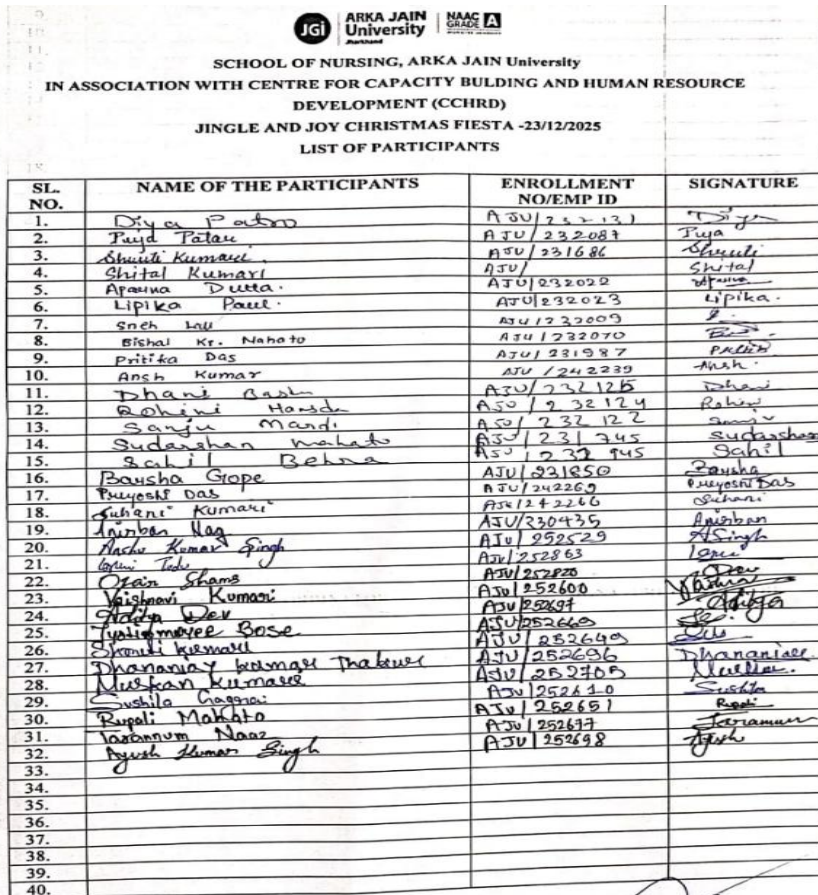 JGi ARKA JAIN University Jharkhand NAAC GRADE A
SCHOOL OF NURSING, ARKA JAIN University
IN ASSOCIATION WITH CENTRE FOR CAPACITY BULDING AND HUMAN RESOURCE
DEVELOPMENT (CCHRD)
JINGLE AND JOY CHRISTMAS FIESTA -23/12/2025
LIST OF PARTICIPANTS
SL. NO. NAME OF THE PARTICIPANTS ENROLLMENT NO/EMP ID SIGNATURE
1. Diya Patro AJU/232131 Diya
2. Puja AJU/232087 Puja
3. Shruti Kumari. AJU/231686 Shruti
4. Shital Kumari AJU/ Shital
5. Aparna Dutta. AJU/232022 Aparna
6. Lipika Paul. AJU/232023 Lipika.
7. Sneh Lall AJU/232009
8. Bishal Kr. Nahato AJU/232070
9. Pritika Das AJU/231987
10. Ansh Kumar AJU/242239 Ansh.
11. Dhani AJU/ Dhani
12. Rohini Hansda AJU/232124 Rohini
13. Sanju Mardi AJU/232122 Sanju
14. Sudarshan Mahato AJU/231745 Sudarshan
15. Sahil Behra AJU/ Sahil
16. Barsha Gope AJU/231850 Barsha
17. Preyoshi Das AJU/242269 Preyoshi Das
18. Suhani Kumari AJU/242266 Suhani
19. Anirban Nag AJU/230435 Anirban
20. Anshu Kumar Singh AJU/252529 ASingh
21. AJU/252863
22. Ozair Shams AJU/252820
23. Vaishnavi Kumari AJU/252600
24. Aditya Dev AJU/252697 Aditya Dev
25. Jyotirmayee Bose AJU/252669
26. Kumari AJU/252649
27. Dhananjay Kumar Thakur AJU/252696 Dhananjay
28. Muskan Kumari AJU/252705 Muskan.
29. Sushila Gagrai AJU/252610
30. Rupali Mahato AJU/252651 Rupali
31. Tarannum Naaz AJU/252677
32. Ayush Kumar Singh AJU/252698 Ayush
33.
34.
35.
36.
37.
38.
39.
40.